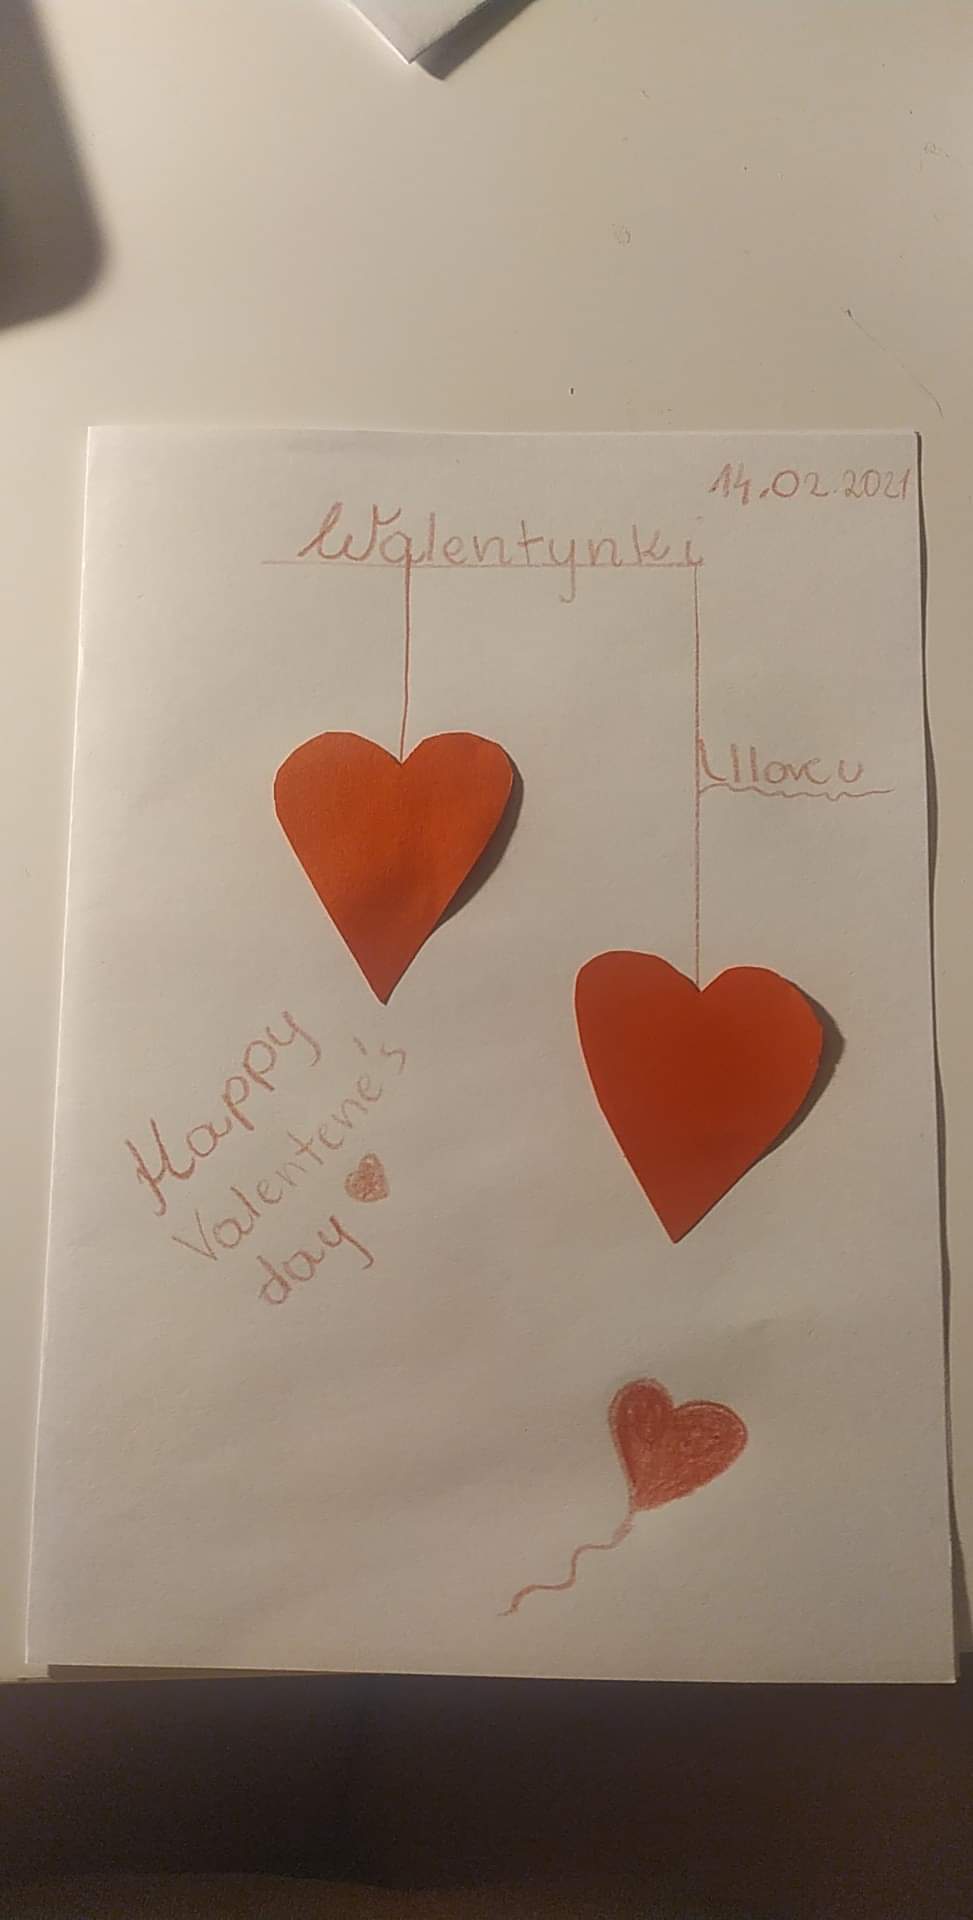 14.02.2021
Walentynki
Happy
Valentene's
day